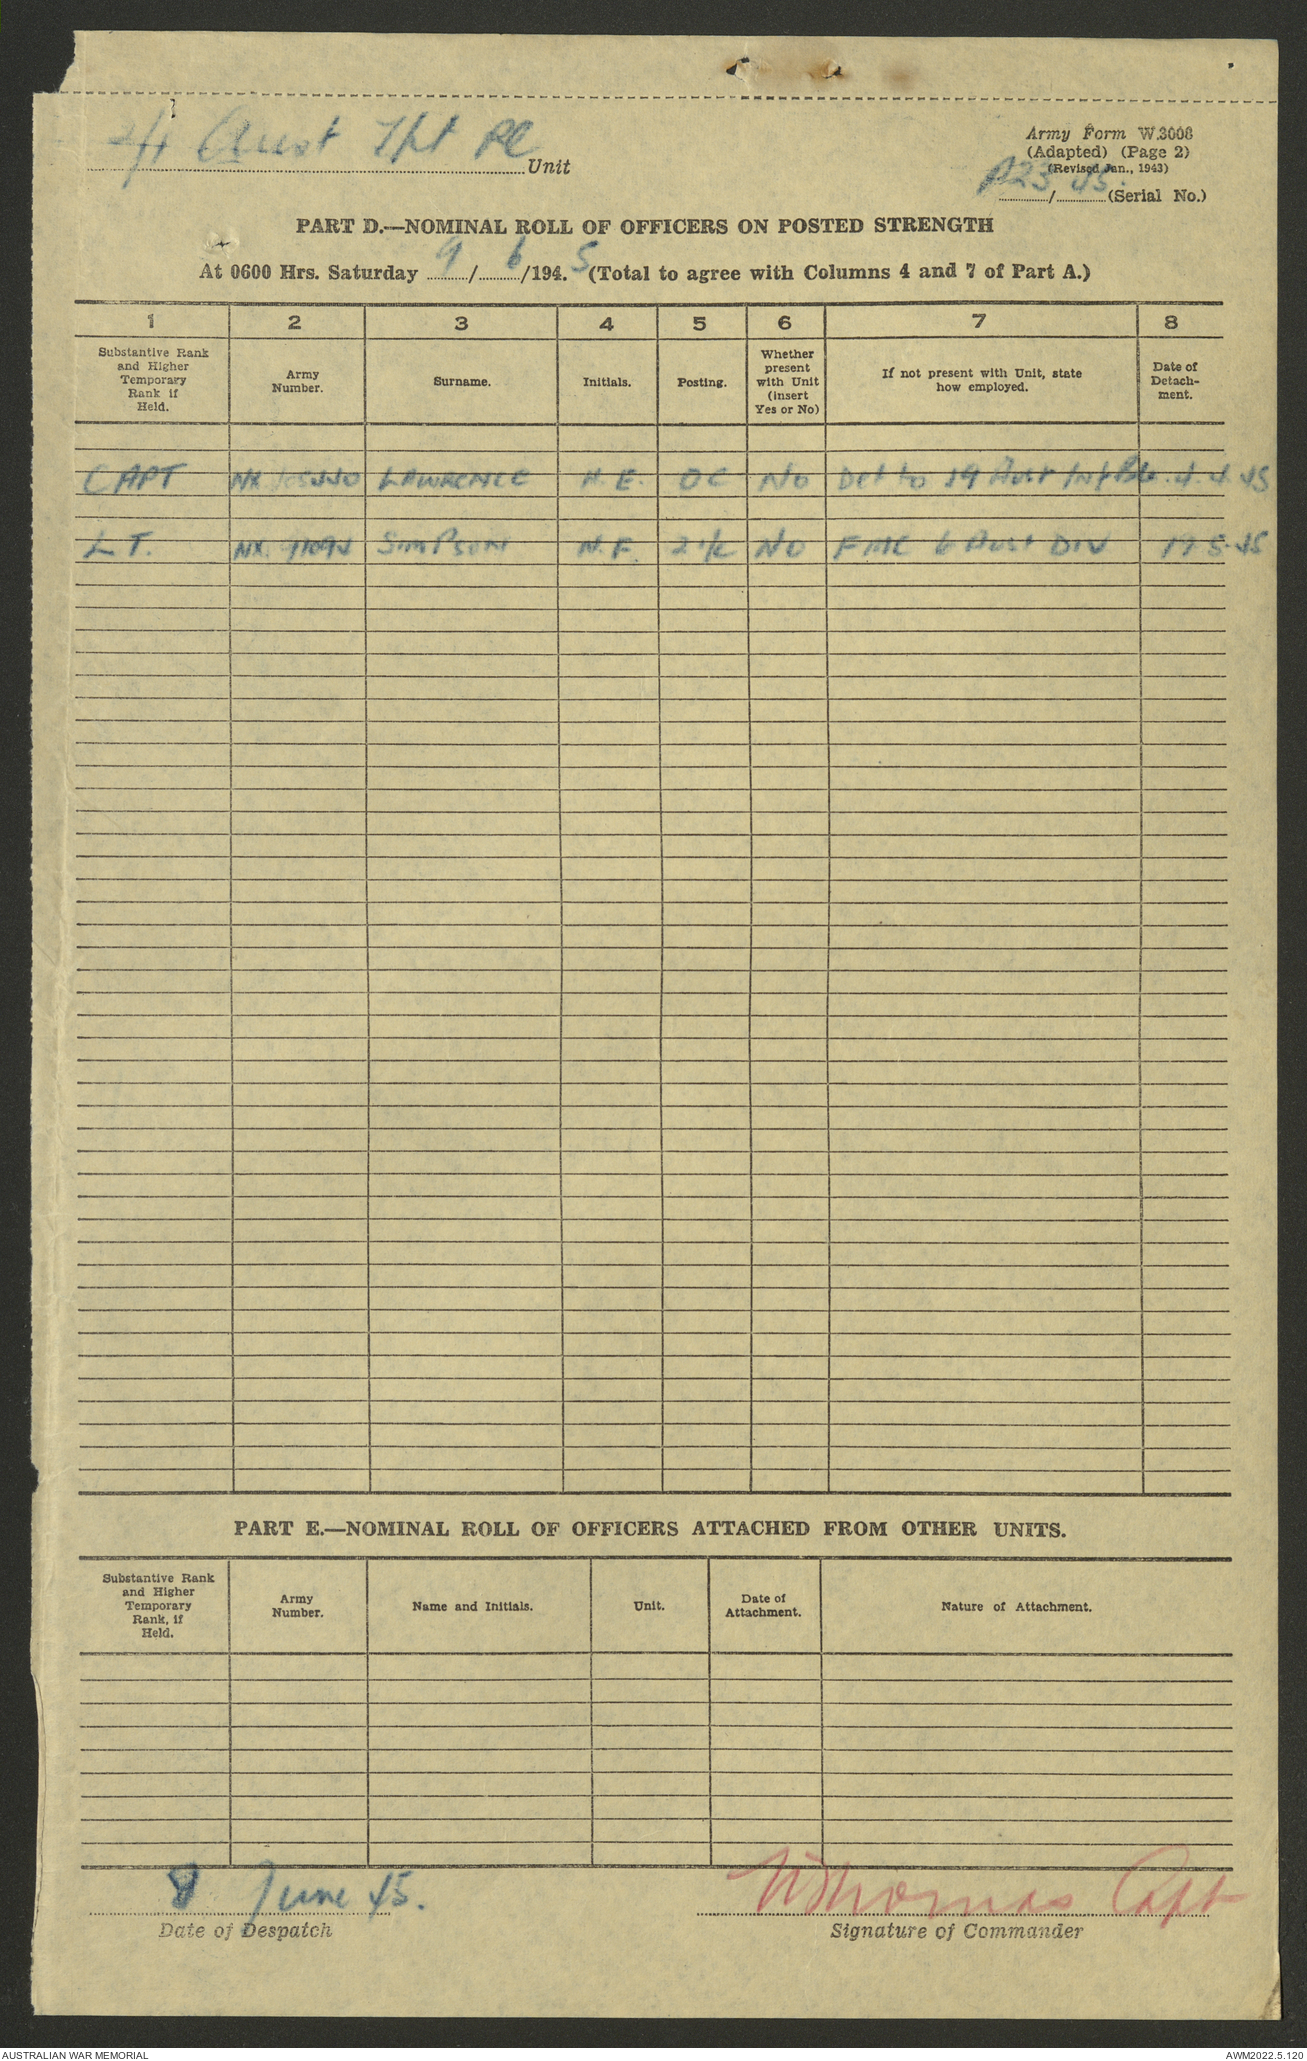 2/4 Aust Fht Pl Unit
Army Form W.3008
(Adapted) (Page 2)
(Revised Jan., 1943)
A23/45. (Serial No.)
PART D.—NOMINAL ROLL OF OFFICERS ON POSTED STRENGTH
At 0600 Hrs. Saturday 9/6/1945 (Total to agree with Columns 4 and 7 of Part A.)
1 2 3 4 5 6 7 8
Substantive Rank and Higher Temporary Rank if Held.
Army Number.
Surname.
Initials.
Posting.
Whether present with Unit (insert Yes or No)
If not present with Unit, state how employed.
Date of Detach-ment.
CAPT NX LAWRENCE H.E. OC No Det to 19 Aust Inf Bde 4.4.45
LT. NX SIMPSON N.F. 2 i/c No FMC 6 Aust DIV 19.5.45
PART E.—NOMINAL ROLL OF OFFICERS ATTACHED FROM OTHER UNITS.
Substantive Rank and Higher Temporary Rank, if Held.
Army Number.
Name and Initials.
Unit.
Date of Attachment.
Nature of Attachment.
8 June 45.
Date of Despatch
Thomas Capt
Signature of Commander
AUSTRALIAN WAR MEMORIAL
AWM2022.5.120